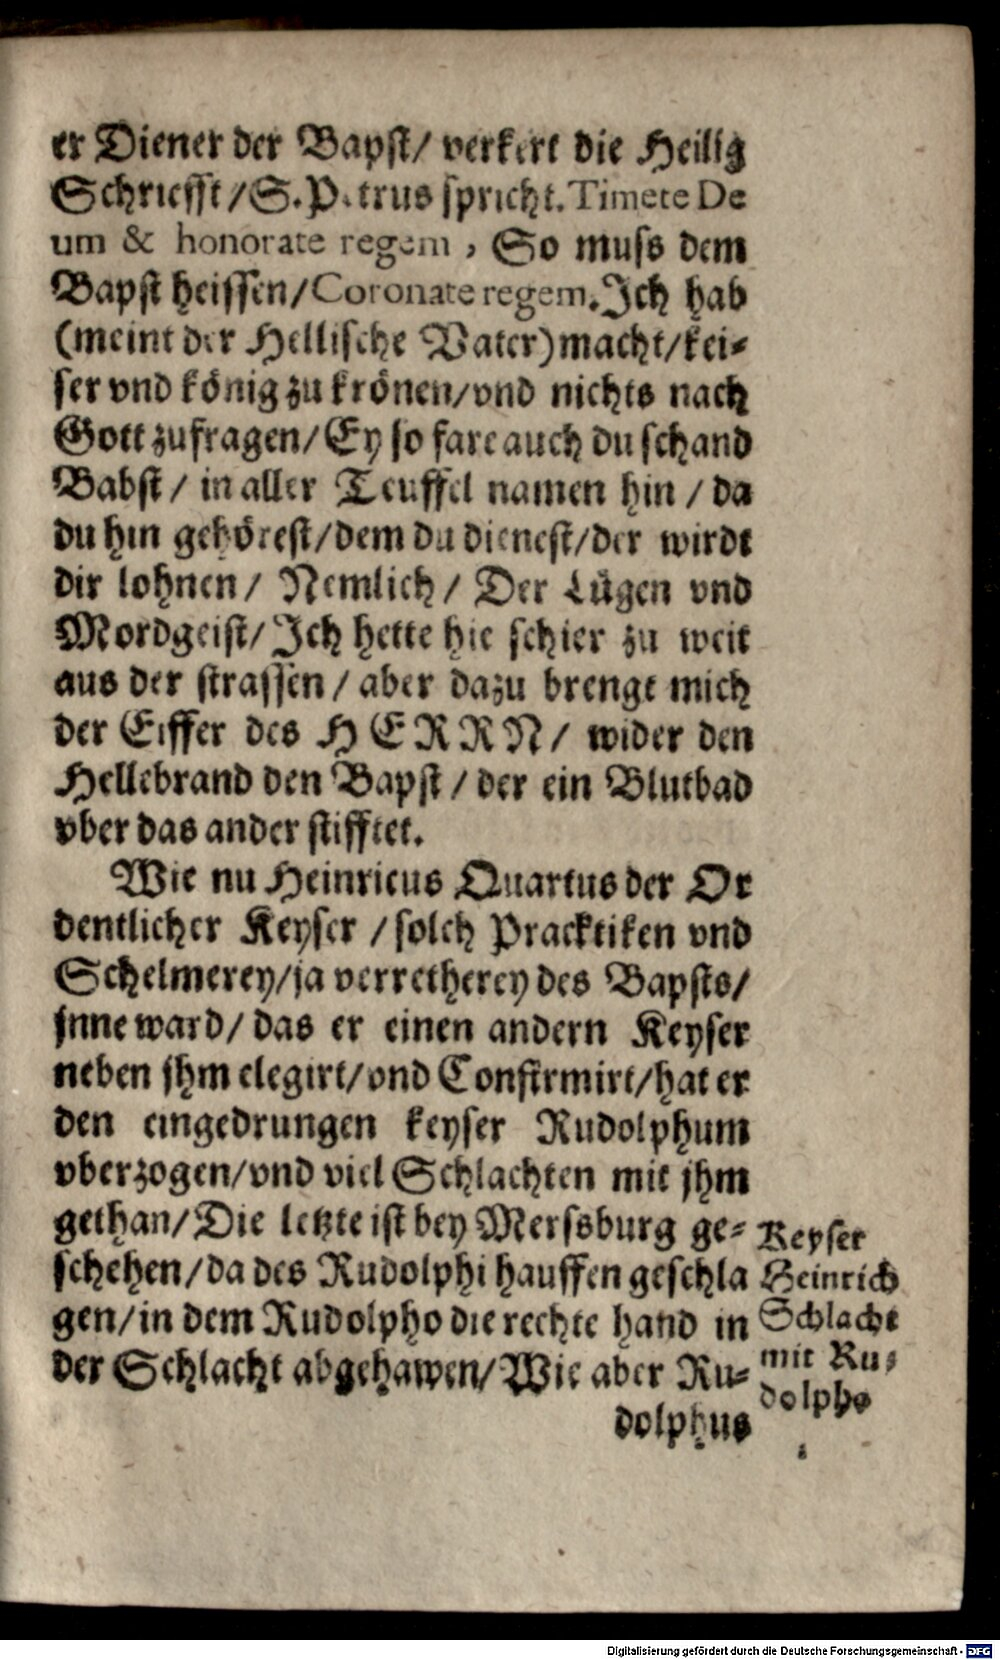 er Diener der Bapst/ verkert die Heilig
Schriefft/S. Petrus spricht. Timete De
um & honorate regem, So muss dem
Bapst heissen/Coronate regem. Ich hab
(meint der Hellische Vater) macht/kei-
ser vnd könig zu krönen/vnd nichts nach
Gott zufragen/Ey so fare auch du schand
Babst/ in aller Teuffel namen hin/ da
du hin gehörest/dem du dienest/der wirdt
dir lohnen/ Nemlich/ Der Lügen vnd
Mordgeist/ Ich hette hie schier zu weit
aus der strassen/ aber dazu brengt mich
der Eiffer des HERRN/ wider den
Hellebrand den Bapst/ der ein Blutbad
vber das ander stifftet.
Wie nu Heinricus Quartus der Or
dentlicher Keyser/solch Pracktiken vnd
Schelmerey/ja verretherey des Bapsts/
jnne ward/ das er einen andern Keyser
neben jhm elegirt/vnd Confirmirt/hat er
den eingedrungen keyser Rudolphum
vberzogen/vnd viel Schlachten mit jhm
gethan/Die letzte ist bey Mersburg ge-
schehen/da des Rudolphi hauffen geschla
gen/in dem Rudolpho die rechte hand in
der Schlacht abgehawen/Wie aber Ru-
dolphus
Keyser
Heinrich
Schlacht
mit Ru-
dolpho
.
Digitalisierung gefördert durch die Deutsche Forschungsgemeinschaft - DFG